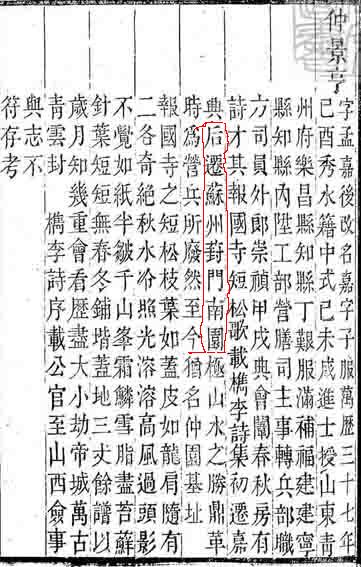 仲景亨
字孟嘉後改名嘉字子服萬歷三十七年
己酉秀水籍中式己未成進士授山東青
州府樂昌縣知縣丁艱服滿補福建建寧
縣知縣內陞工部營膳司主事轉兵部職
方司員外郎崇禎甲戌典會闈春秋房有
詩才其報國寺短松歌載檇李詩集初遷嘉
典后遷蘇州葑門南園極山水之勝鼎革
時爲營兵所廢然至今猶名仲園基址
報國寺之短松枝葉如蓋皮如龍肩隨有
二各奇絕秋水份照光溶溶高風過頭影
不覺如紙半皺千山峯霜鱗雪脂盡苔蘚
針葉短短無春冬鋪堦蓋地三丈餘譜以
歲月知幾重會看歷盡大小劫帝城萬古
青雲封 檇李詩序載公官至山西僉事
與志不
符存考